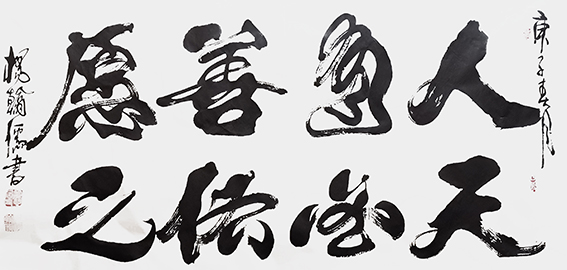 庚子春月
人善愿
天必佑之
楊翰儒書